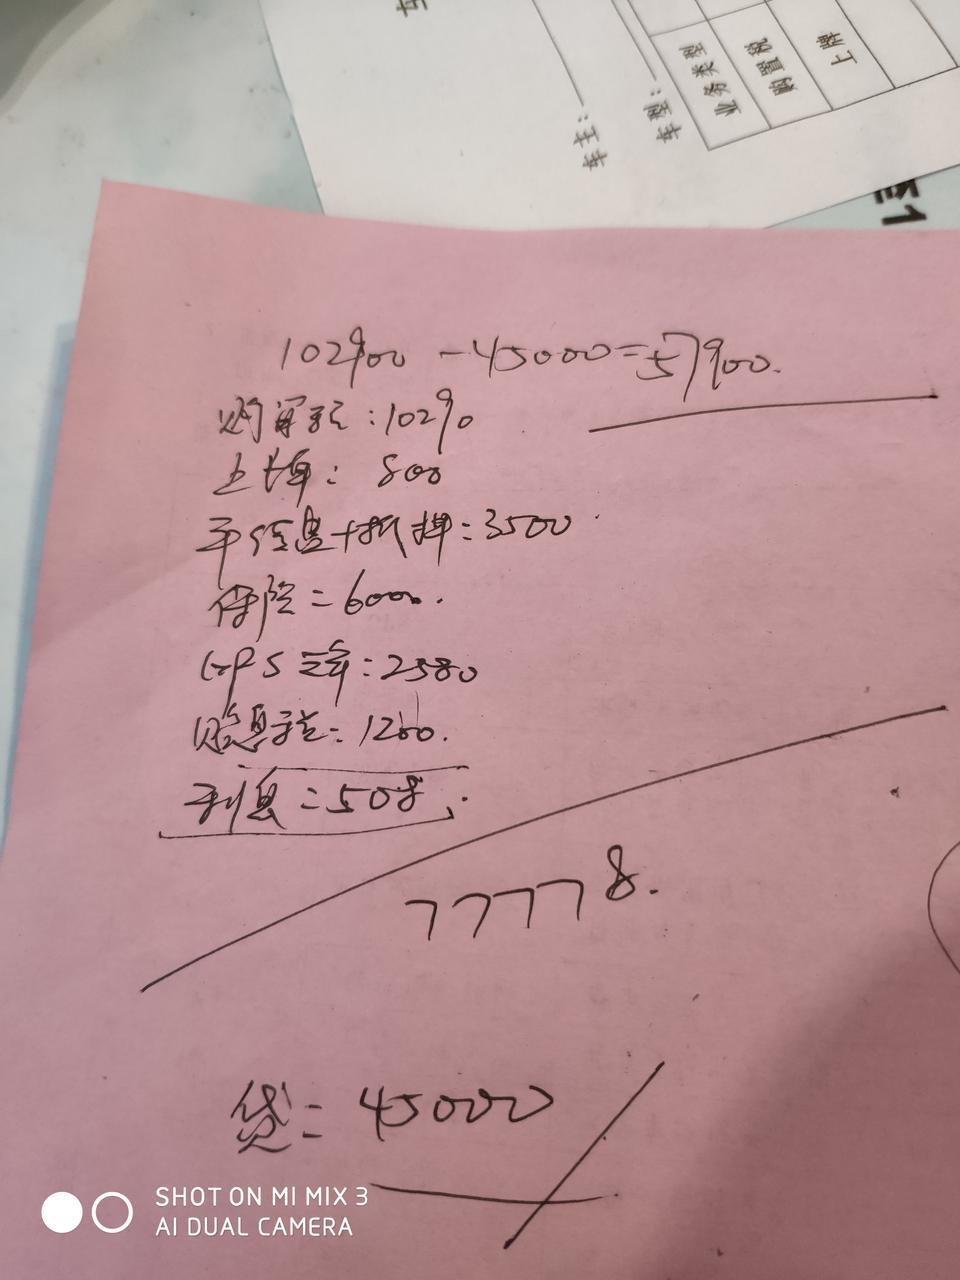 车
车主：
车型：
业务类型
购置税
上牌
102900-45000=57900.
购置税：10290
上牌：800
平台盘+抵押：3500
保险=6000.
GPS 三年：2580
贴息：1200.
利息=508.
77778.
贷=45000
SHOT ON MI MIX 3
AI DUAL CAMERA